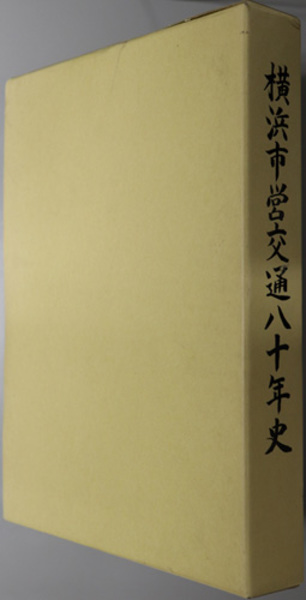 横浜市営交通八十年史